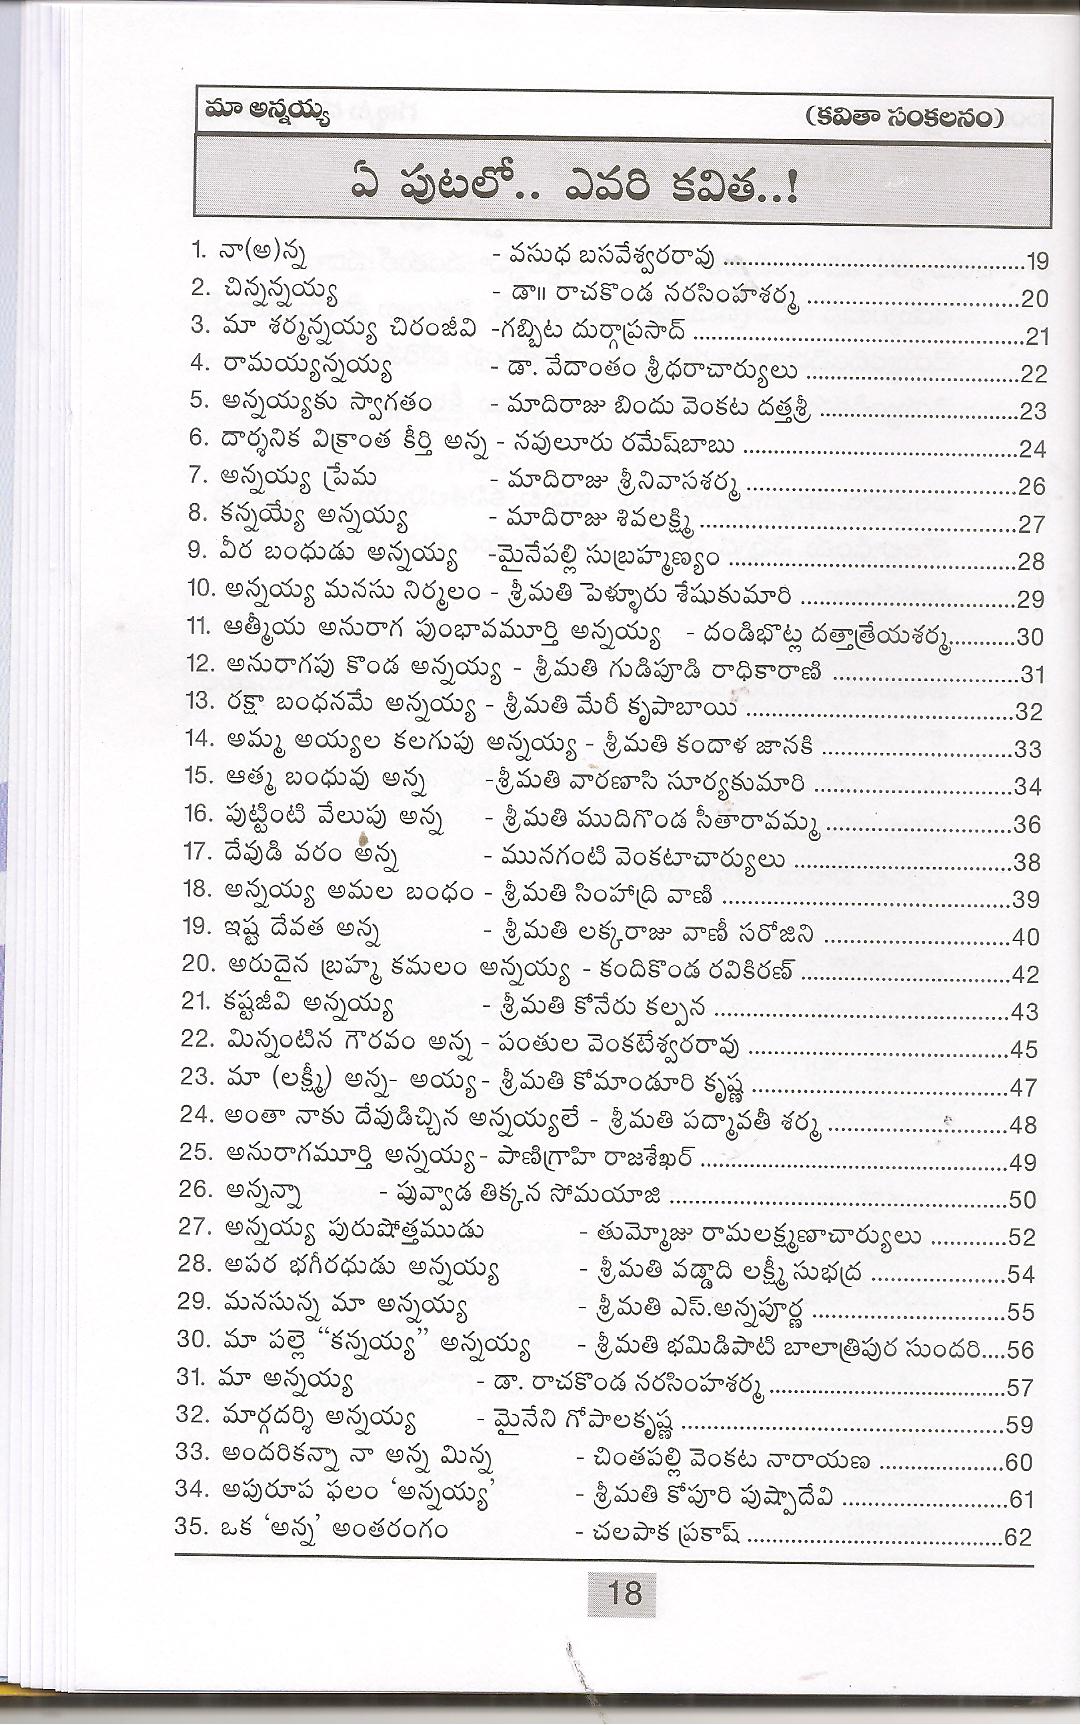 మా అన్నయ్య (కవితా సంకలనం)
ఏ పుటలో.. ఎవరి కవిత..!
1. నా(అ)న్న - వసుధ బసవేశ్వరరావు ..........19
2. చిన్నన్నయ్య - డా॥ రాచకొండ నరసింహశర్మ ..........20
3. మా శర్మన్నయ్య చిరంజీవి -గబ్బిట దుర్గాప్రసాద్ ..........21
4. రామయ్యన్నయ్య - డా. వేదాంతం శ్రీధరాచార్యులు ..........22
5. అన్నయ్యకు స్వాగతం - మాదిరాజు బిందు వెంకట దత్తశ్రీ ..........23
6. దార్శనిక విక్రాంత కీర్తి అన్న - నవులూరు రమేష్‌బాబు ..........24
7. అన్నయ్య ప్రేమ - మాదిరాజు శ్రీనివాసశర్మ ..........26
8. కన్నయ్యే అన్నయ్య - మాదిరాజు శివలక్ష్మి ..........27
9. వీర బంధుడు అన్నయ్య -మైనేపల్లి సుబ్రహ్మణ్యం ..........28
10. అన్నయ్య మనసు నిర్మలం - శ్రీమతి పెళ్ళూరు శేషుకుమారి ..........29
11. ఆత్మీయ అనురాగ పుంభావమూర్తి అన్నయ్య - దండిభొట్ల దత్తాత్రేయశర్మ..........30
12. అనురాగపు కొండ అన్నయ్య - శ్రీమతి గుడిపూడి రాధికారాణి ..........31
13. రక్షా బంధనమే అన్నయ్య - శ్రీమతి మేరీ కృపాబాయి ..........32
14. అమ్మ అయ్యల కలగుపు అన్నయ్య - శ్రీమతి కందాళ జానకి ..........33
15. ఆత్మ బంధువు అన్న -శ్రీమతి వారణాసి సూర్యకుమారి ..........34
16. పుట్టింటి వేలుపు అన్న - శ్రీమతి ముదిగొండ సీతారావమ్మ ..........36
17. దేవుడి వరం అన్న - మునగంటి వెంకటాచార్యులు ..........38
18. అన్నయ్య అమల బంధం - శ్రీమతి సింహాద్రి వాణి ..........39
19. ఇష్ట దేవత అన్న - శ్రీమతి లక్కరాజు వాణీ సరోజిని ..........40
20. అరుదైన బ్రహ్మ కమలం అన్నయ్య - కందికొండ రవికిరణ్ ..........42
21. కష్టజీవి అన్నయ్య - శ్రీమతి కోనేరు కల్పన ..........43
22. మిన్నంటిన గౌరవం అన్న - పంతుల వెంకటేశ్వరరావు ..........45
23. మా (లక్ష్మీ) అన్న- అయ్య- శ్రీమతి కోమాండూరి కృష్ణ ..........47
24. అంతా నాకు దేవుడిచ్చిన అన్నయ్యలే - శ్రీమతి పద్మావతీ శర్మ ..........48
25. అనురాగమూర్తి అన్నయ్య- పాణిగ్రాహి రాజశేఖర్ ..........49
26. అన్నన్నా - పువ్వాడ తిక్కన సోమయాజి ..........50
27. అన్నయ్య పురుషోత్తముడు - తుమ్మోజు రామలక్ష్మణాచార్యులు ..........52
28. అపర భగీరధుడు అన్నయ్య - శ్రీమతి వడ్డాది లక్ష్మీ సుభద్ర ..........54
29. మనసున్న మా అన్నయ్య - శ్రీమతి ఎస్.అన్నపూర్ణ ..........55
30. మా పల్లె "కన్నయ్య" అన్నయ్య - శ్రీమతి భమిడిపాటి బాలాత్రిపుర సుందరి....56
31. మా అన్నయ్య - డా. రాచకొండ నరసింహశర్మ ..........57
32. మార్గదర్శి అన్నయ్య - మైనేని గోపాలకృష్ణ ..........59
33. అందరికన్నా నా అన్న మిన్న - చింతపల్లి వెంకట నారాయణ ..........60
34. అపురూప ఫలం 'అన్నయ్య' - శ్రీమతి కోపూరి పుష్పాదేవి ..........61
35. ఒక 'అన్న' అంతరంగం - చలపాక ప్రకాష్ ..........62
18